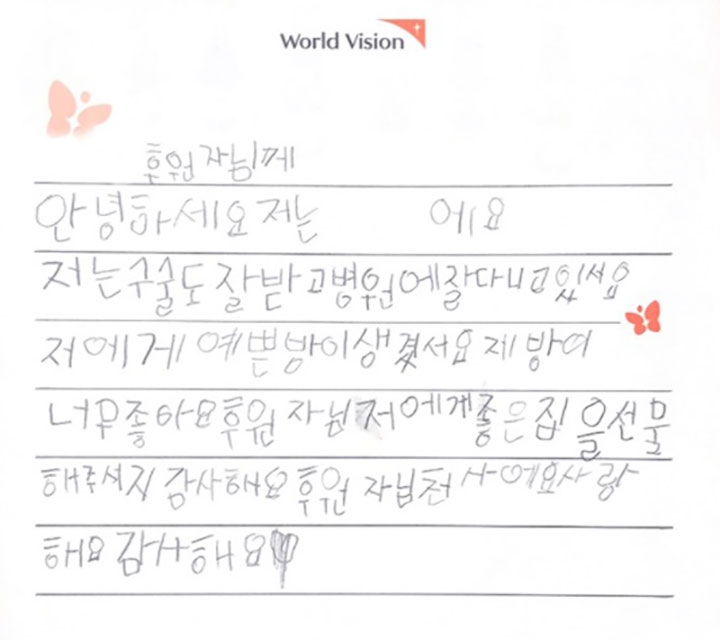 World Vision
후원자님께
안녕하세요 저는 에요
저는 수술도 잘받고 병원에 잘다니고 있서요
저에게 예쁜방이 생겼서요 제 방이
너무 좋아요 후원자님 저에게 좋은 집을 선물
해주셔서 감사해요 후원자님 천사에요 사랑
해요 감사해요